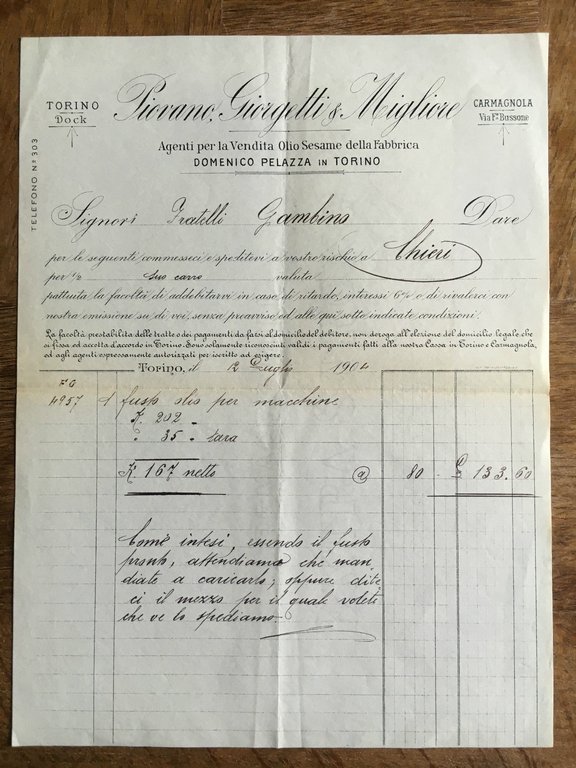 Piovano, Giorgetti & Migliore
TORINO
Dock
CARMAGNOLA
Via Fn Bussone
TELEFONO No 303
Agenti per la Vendita Olio Sesame della Fabbrica
DOMENICO PELAZZA IN TORINO
Signori Fratelli Gambino Dare
per le seguenti commesseci e speditevi a vostro rischio a Chieri
per 1/2 suo carro valuta
pattuita la facoltà di addebitarvi in caso di ritardo, interessi 6% o di rivalerci con
nostra emissione su di voi, senza preavviso ed alle qui sotto indicate condizioni.
La facoltà prestabilita delle tratte o dei pagamenti da farsi al domicilio del debitore, non deroga all'elezione del domicilio legale, che
si fissa ed accetta d'accordo in Torino. Sono solamente riconosciuti validi i pagamenti fatti alla nostra Cassa in Torino e Carmagnola,
ed agli agenti espressamente autorizzati per iscritto ad esigere.
Torino, il 12 Luglio 1904
4957 1 fusto olio per macchine
K. 202 -
" 35 - tara
K. 167 netto @ 80 - £ 133.60
Come intesi, essendo il fusto
pronto, attendiamo che man
diate a caricarlo; oppure dite
ci il mezzo per il quale volete
che ve lo spediamo